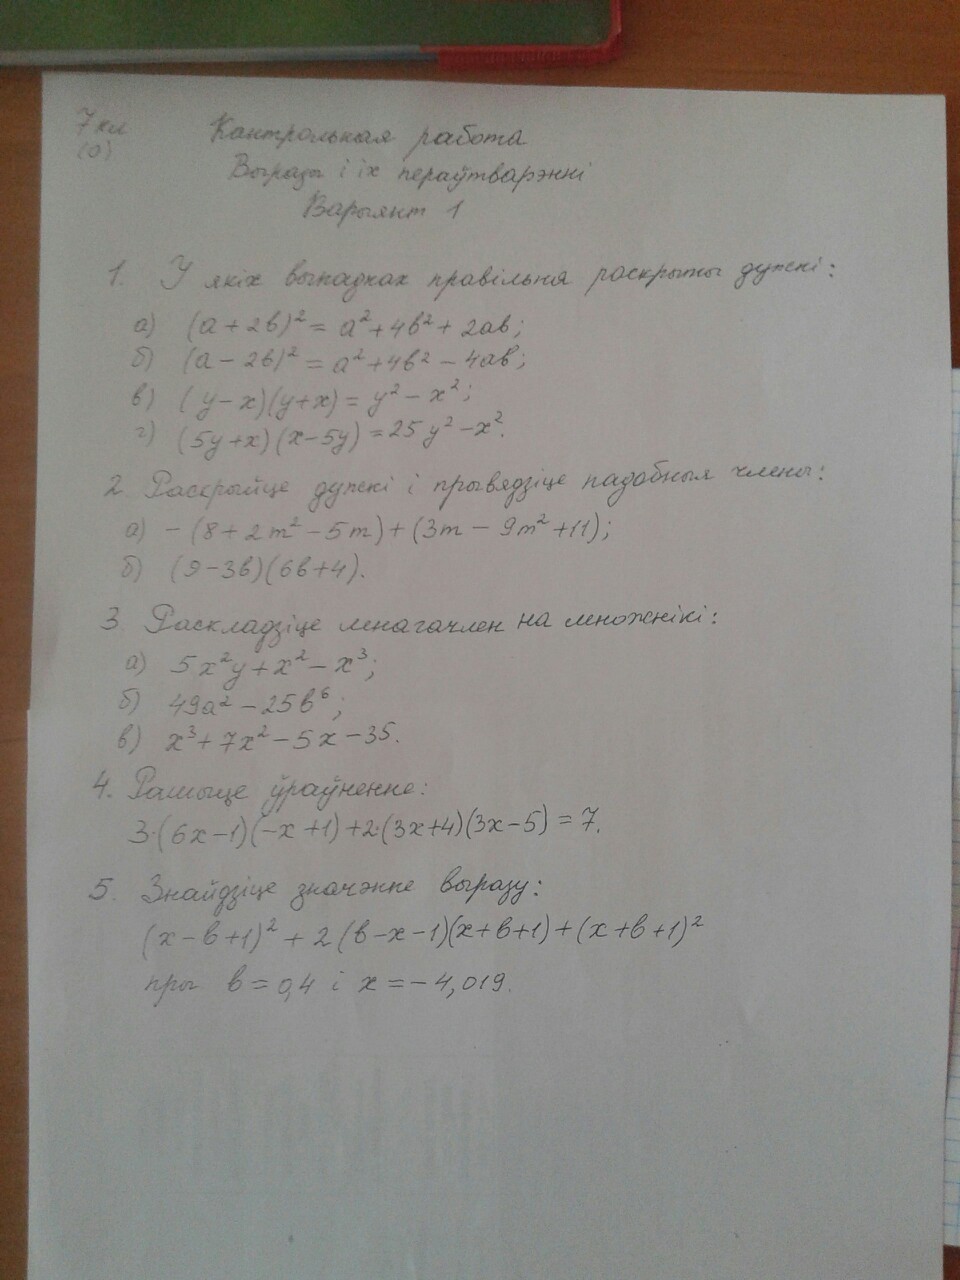 7 кл
(0)
Кантрольная работа
Выразы і іх пераўтварэнні
Варыянт 1
1. У якіх выпадках правільна раскрыты дужкі:
а) (a + 2b)² = a² + 4b² + 2ab;
б) (a - 2b)² = a² + 4b² - 4ab;
в) (y - x)(y + x) = y² - x²;
г) (5y + x)(x - 5y) = 25y² - x².
2. Раскрыйце дужкі і прывядзіце падобныя члены:
а) - (8 + 2m² - 5m) + (3m - 9m² + 11);
б) (9 - 3b)(6b + 4).
3. Раскладзіце мнагачлен на множнікі:
а) 5x²y + x² - x³;
б) 49a² - 25b⁶;
в) x³ + 7x² - 5x - 35.
4. Рашыце ўраўненне:
3·(6x - 1)(-x + 1) + 2·(3x + 4)(3x - 5) = 7.
5. Знайдзіце значэнне выразу:
(x - b + 1)² + 2(b - x - 1)(x + b + 1) + (x + b + 1)²
пры b = 0,4 і x = - 4,019.